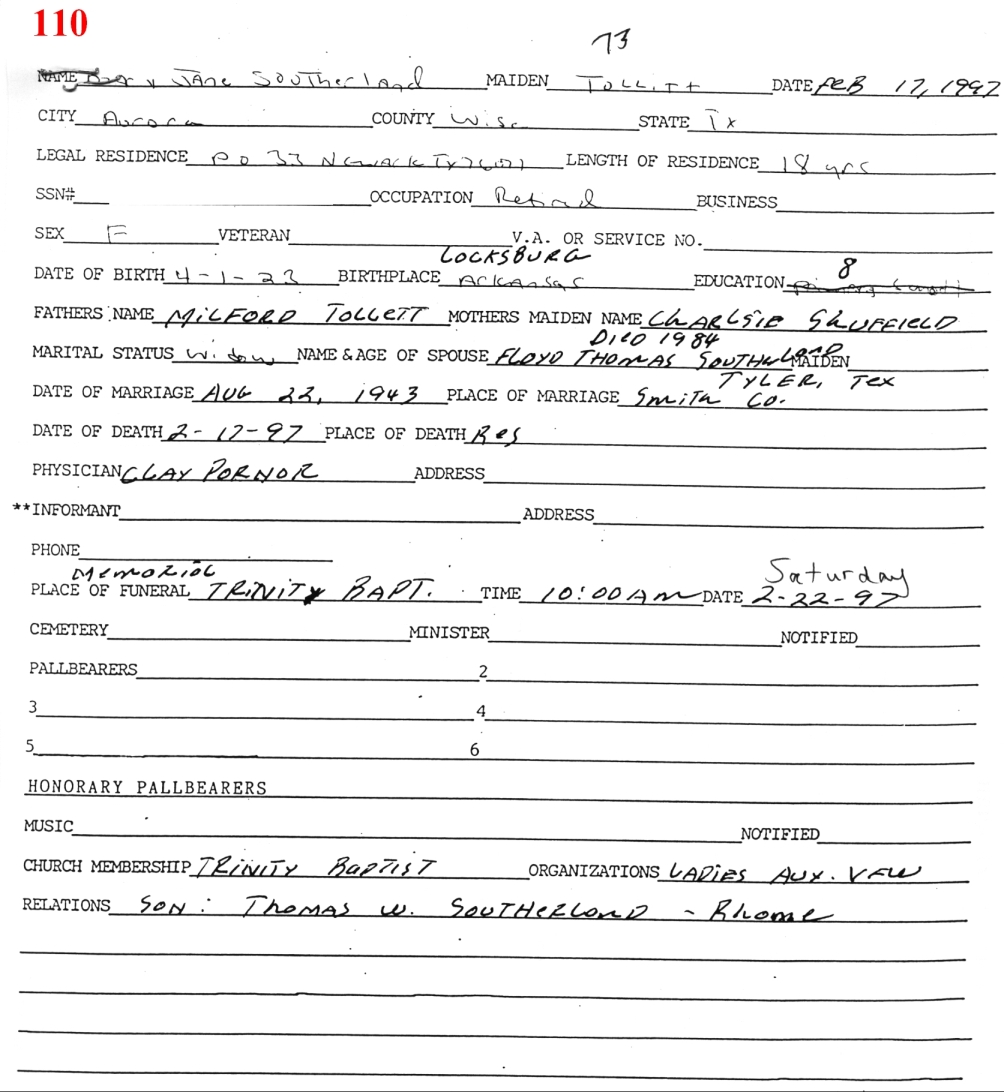 110
73
NAME Jane Southerland MAIDEN Tollitt DATE Feb 17, 1997
CITY Aurora COUNTY Wise STATE Tx
LEGAL RESIDENCE P O 33 Newark Tx LENGTH OF RESIDENCE 18 yrs
SSN# OCCUPATION Retired BUSINESS
SEX F VETERAN V.A. OR SERVICE NO.
LOCKSBURG
DATE OF BIRTH 4-1-23 BIRTHPLACE Arkansas EDUCATION 8
FATHERS NAME MILFORD TOLLETT MOTHERS MAIDEN NAME CHARLSIE SHUFFIELD
DIED 1984
MARITAL STATUS Widow NAME & AGE OF SPOUSE FLOYD THOMAS SOUTHERLAND MAIDEN
TYLER, Tex
DATE OF MARRIAGE AUG 22, 1943 PLACE OF MARRIAGE Smith Co.
DATE OF DEATH 2-17-97 PLACE OF DEATH Res
PHYSICIAN CLAY PORNOR ADDRESS
**INFORMANT ADDRESS
PHONE
Memorial Saturday
PLACE OF FUNERAL TRINITY BAPT. TIME 10:00 AM DATE 2-22-97
CEMETERY MINISTER NOTIFIED
PALLBEARERS 2
3 4
5 6
HONORARY PALLBEARERS
MUSIC NOTIFIED
CHURCH MEMBERSHIP TRINITY BAPTIST ORGANIZATIONS LADIES AUX. VFW
RELATIONS SON: THOMAS W. SOUTHERLAND - Rhome